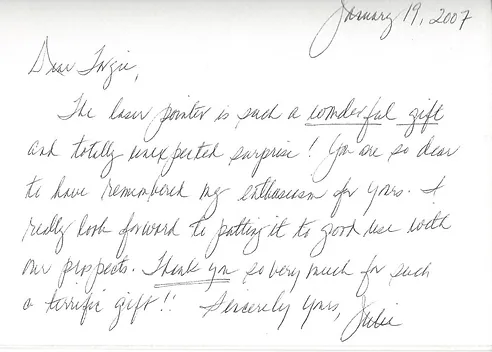 January 19, 2007
Dear
The laser pointer is such a wonderful gift
and totally unexpected surprise! You are so dear
to have remembered my enthusiasm for yours. I
really look forward to putting it to good use with
our prospects. Thank you so very much for such
a terrific gift!! Sincerely yours, Julie